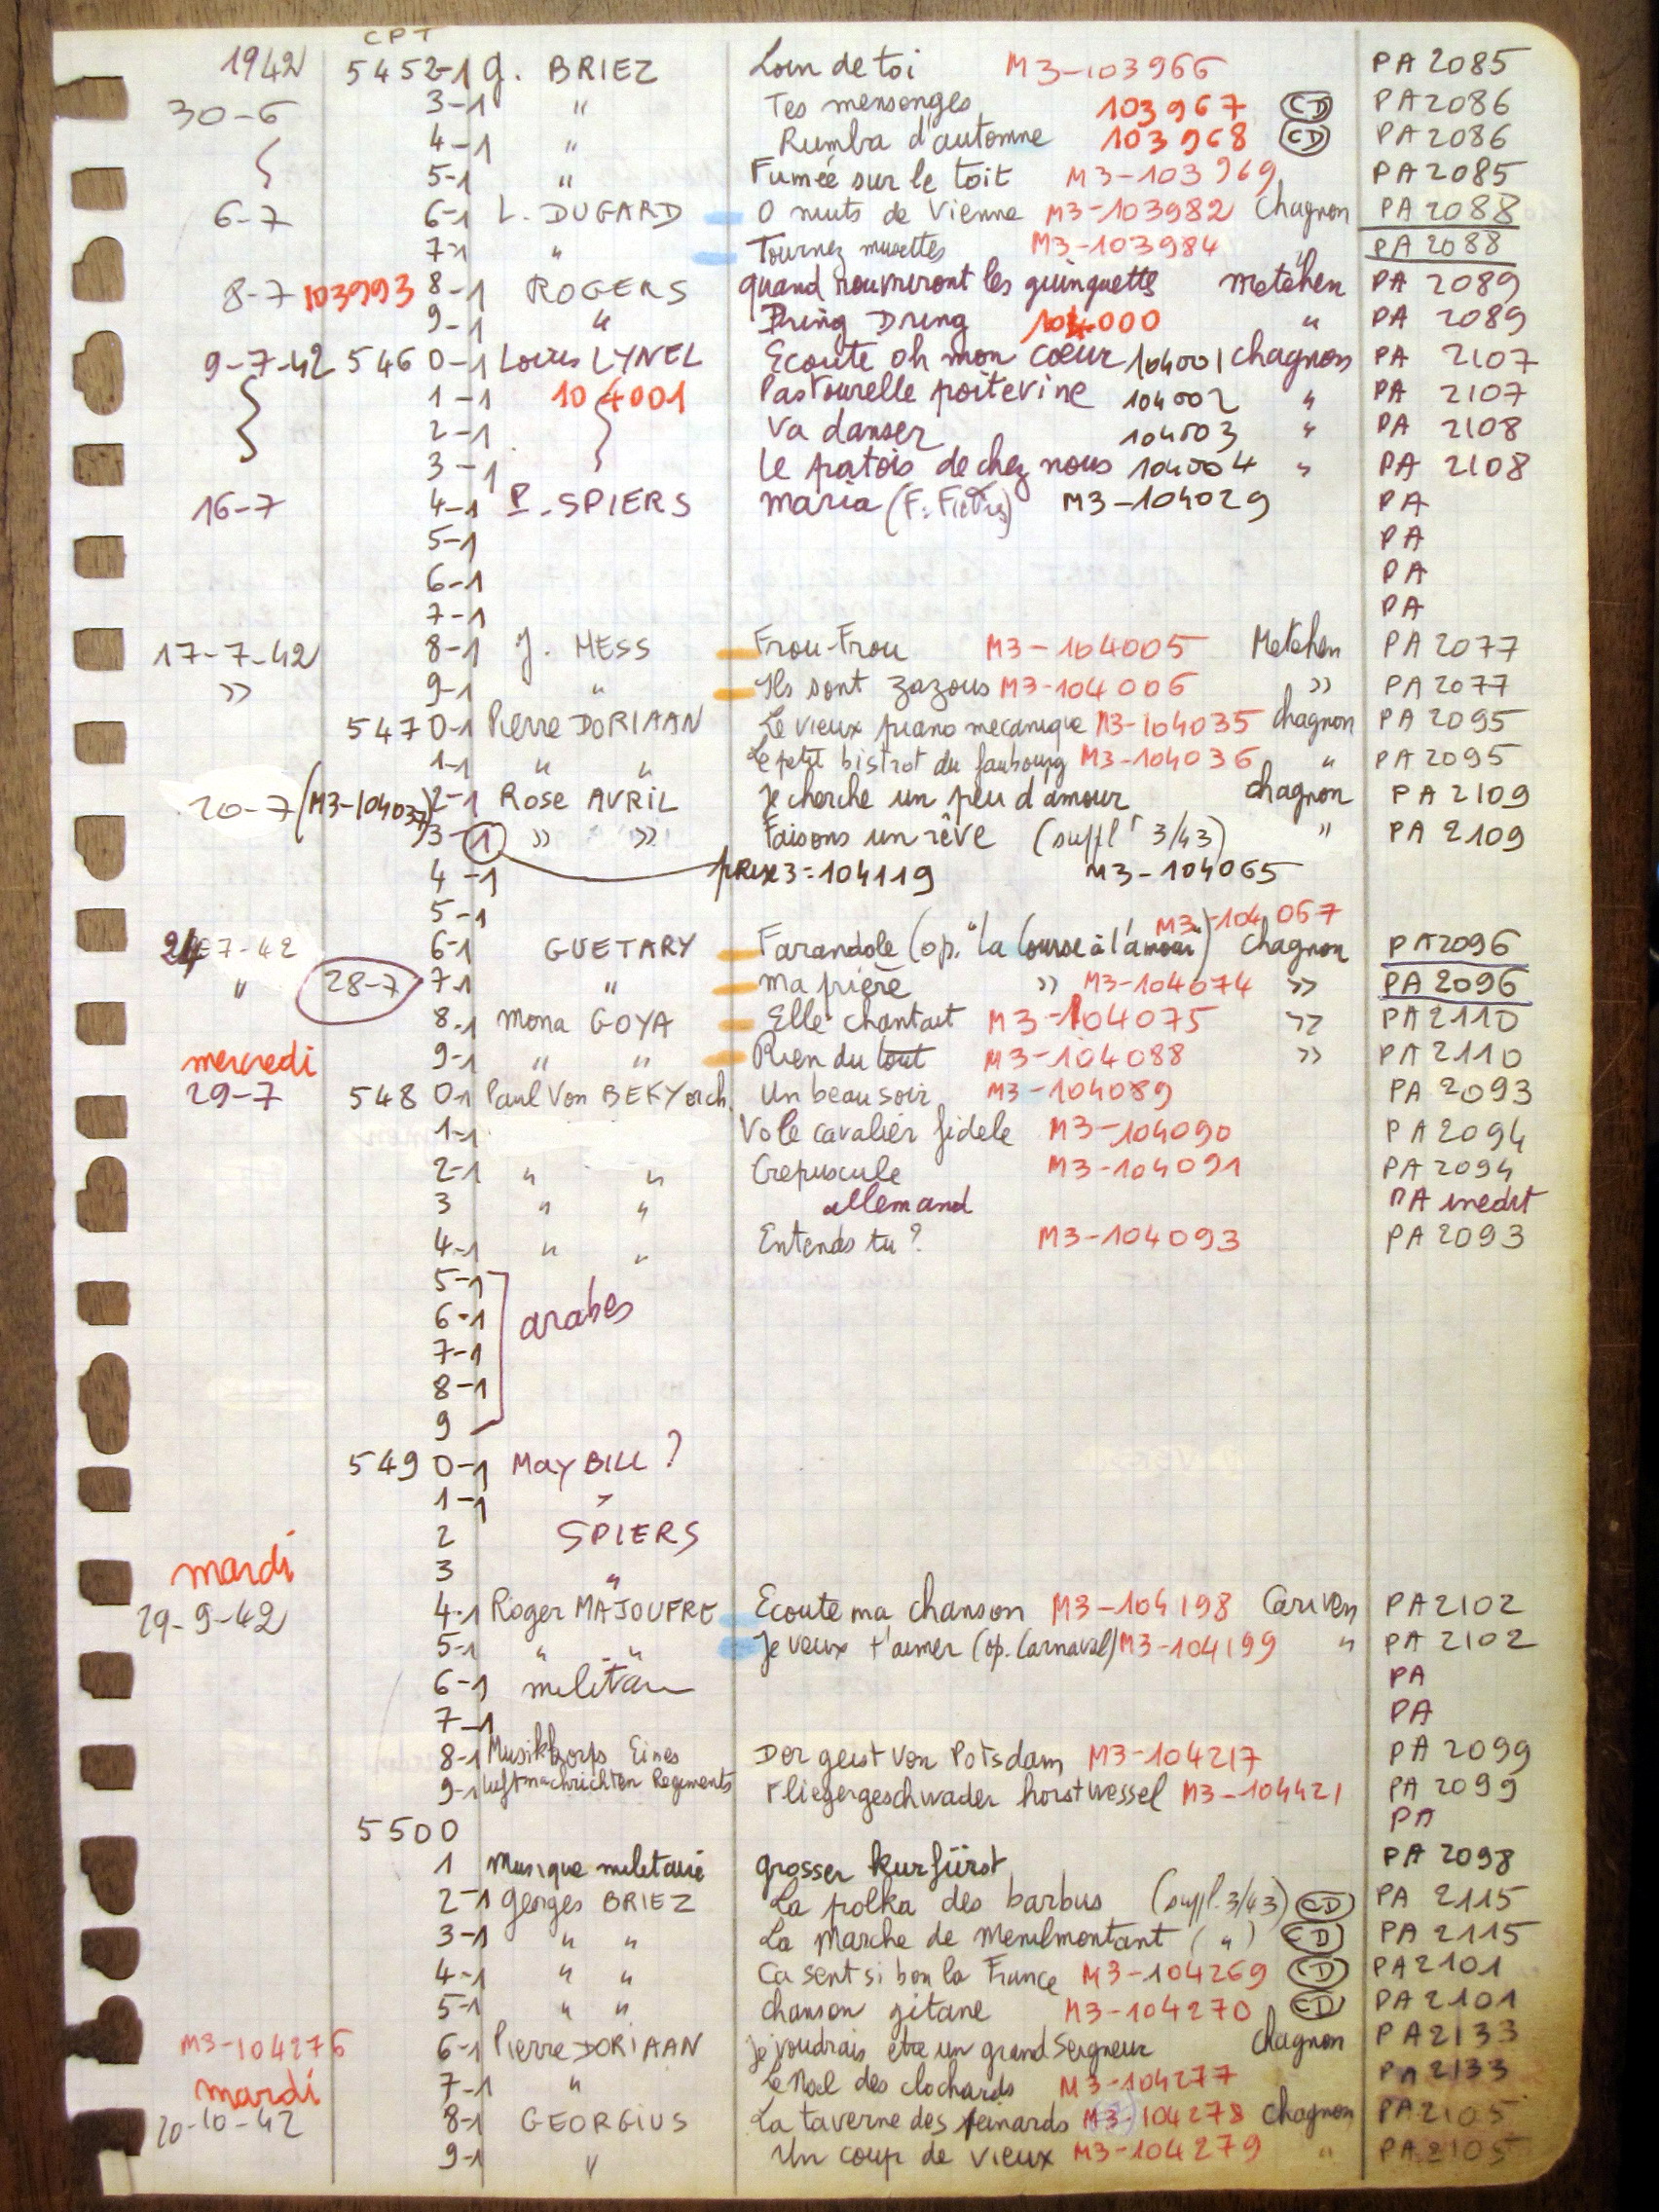 CPT
1942 5452-1 G. BRIEZ Loin de toi M3-103966 PA 2085
30-6 3-1 " Tes mensonges 103967 CD PA 2086
4-1 " Rumba d'automne 103968 CD PA 2086
5-1 " Fumée sur le toit M3-103969 PA 2085
6-7 6-1 L. DUGARD O nuits de Vienne M3-103982 Chagnon PA 2088
7-1 " Tournez musettes M3-103984 PA 2088
8-7 103993 8-1 ROGERS quand rouvriront les guinguettes Metehen PA 2089
9-1 " Dring Dring 104000 " PA 2089
9-7-42 546 0-1 Louis LYNEL Ecoute oh mon cœur 104001 Chagnon PA 2107
1-1 104001 Pastourelle poitevine 104002 " PA 2107
2-1 Va danser 104003 " PA 2108
3-1 Le patois de chez nous 104004 " PA 2108
16-7 4-1 P. SPIERS Maria M3-104029 PA
5-1 PA
6-1 PA
7-1 PA
17-7-42 8-1 J. HESS Frou-Frou M3-104005 Metehen PA 2077
" 9-1 " Ils sont zazous M3-104006 " PA 2077
547 0-1 Pierre DORIAAN Le vieux piano mecanique M3-104035 Chagnon PA 2095
1-1 " " Le petit bistrot du faubourg M3-104036 " PA 2095
20-7 (M3-104037) 2-1 Rose AVRIL Je cherche un peu d'amour Chagnon PA 2109
3-1 " " Faisons un rêve (suppl' 3/43) " PA 2109
4-1 prise 3 = 104119 M3-104065
5-1
M3-104067
24-7-42 6-1 GUETARY Farandole (op. "la Course à l'amour") Chagnon PA 2096
" 28-7 7-1 " Ma prière " M3-104074 " PA 2096
8-1 Mona GOYA Elle chantait M3-104075 " PA 2110
mercredi 9-1 " " Rien du tout M3-104088 " PA 2110
29-7 548 0-1 Paul Von BEKY orch. Un beau soir M3-104089 PA 2093
1-1 Vole cavalier fidele M3-104090 PA 2094
2-1 " " Crepuscule M3-104091 PA 2094
3 " " allemand PA inedit
4-1 " " Entends tu? M3-104093 PA 2093
5-1
6-1 arabes
7-1
8-1
9
549 0-1 May BILL ?
1-1 "
2 SPIERS
mardi 3 "
29-9-42 4-1 Roger MAJOUFRE Ecoute ma chanson M3-104198 Cariven PA 2102
5-1 " " Je veux t'aimer (op. Carnaval) M3-104199 " PA 2102
6-1 militaire PA
7-1 PA
8-1 Musikkorps Eines Der geist von Potsdam M3-104217 PA 2099
9-1 Luftnachrichten Regiments Fliegergeschwader horst wessel M3-104421 PA 2099
5500 PA
1 Musique militaire grosser kurfürst PA 2098
2-1 Georges BRIEZ La polka des barbus (suppl. 3/43) CD PA 2115
3-1 " " La Marche de Menilmontant ( " ) CD PA 2115
4-1 " " Ca sent si bon la France M3-104269 CD PA 2101
5-1 " " Chanson gitane M3-104270 CD PA 2101
M3-104276 6-1 Pierre DORIAAN Je voudrais etre un grand Seigneur Chagnon PA 2133
mardi 7-1 " Le Noel des clochards M3-104277 PA 2133
20-10-42 8-1 GEORGIUS La taverne des M3-104278 Chagnon PA 2105
9-1 " Un coup de vieux M3-104279 " PA 2105